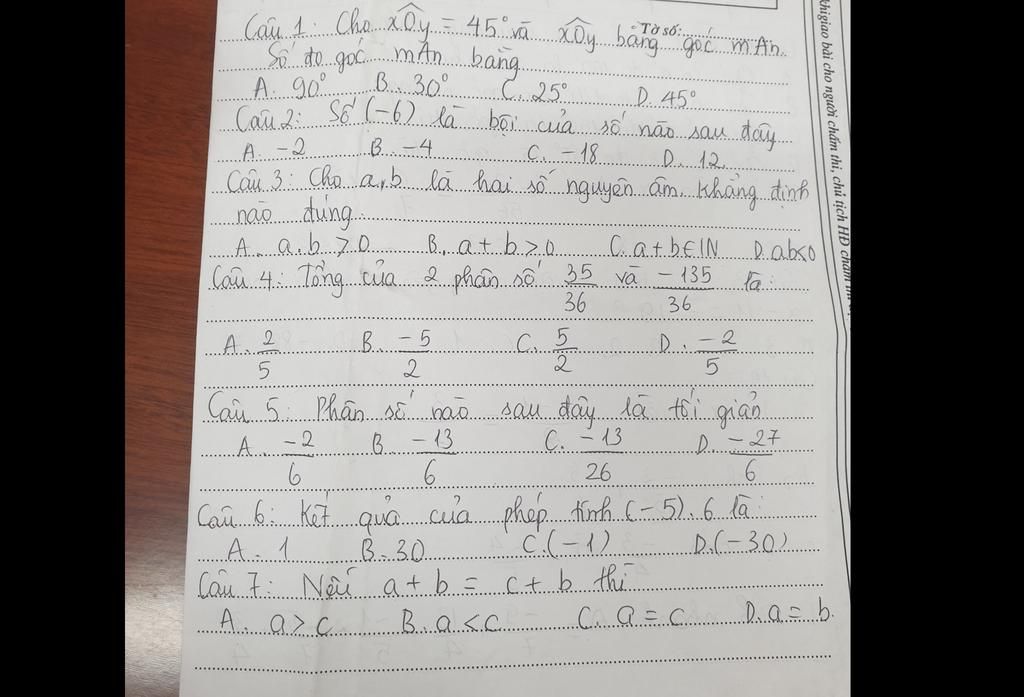 Tờ số:
Câu 1. Cho xÔy = 45° và xÔy bằng góc mAn.
Số đo góc mAn bằng
A. 90° B. 30° C. 25° D. 45°
Câu 2: Số (-6) là bội của số nào sau đây
A. -2 B. -4 C. -18 D. 12
Câu 3: Cho a,b là hai số nguyên âm. Khẳng định
nào đúng
A. a.b > 0 B. a + b > 0 C. a + b ∈ IN D. ab<0
Câu 4: Tổng của 2 phân số 35/36 và -135/36 là:
A. 2/5 B. -5/2 C. 5/2 D. -2/5
Câu 5: Phân số nào sau đây là tối giản
A. -2/6 B. -13/6 C. -13/26 D. -27/6
Câu 6: Kết quả của phép tính (-5). 6 là:
A. 1 B. 30 C. (-1) D. (-30)
Câu 7: Nếu a + b = c + b thì
A. a > c B. a < c C. a = c D. a = b.
giao bài cho người chấm thi, chủ tịch HĐ chấm